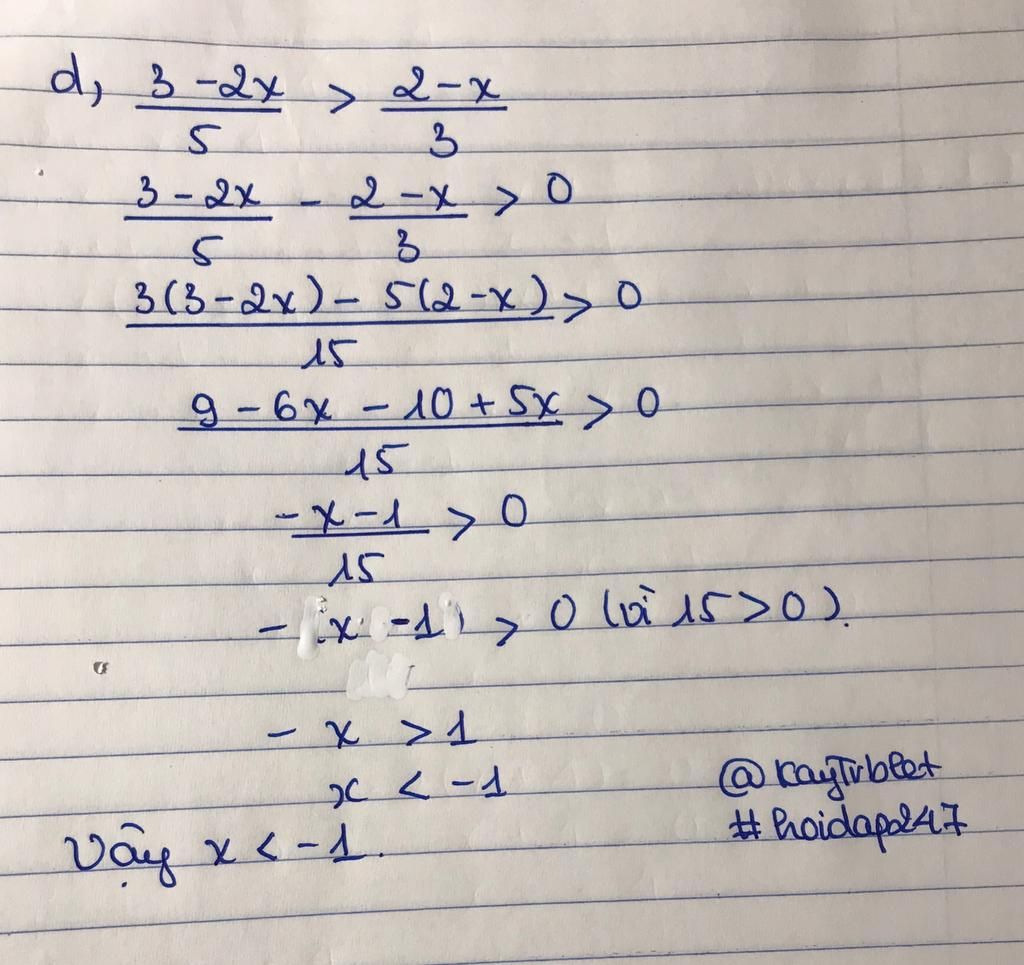 d, (3 - 2x)/5 > (2 - x)/3
(3 - 2x)/5 - (2 - x)/3 > 0
(3(3 - 2x) - 5(2 - x))/15 > 0
(9 - 6x - 10 + 5x)/15 > 0
(-x - 1)/15 > 0
- x - 1 > 0 (vì 15 > 0).
- x > 1
x < -1
Vậy x < -1.
#hoidap247